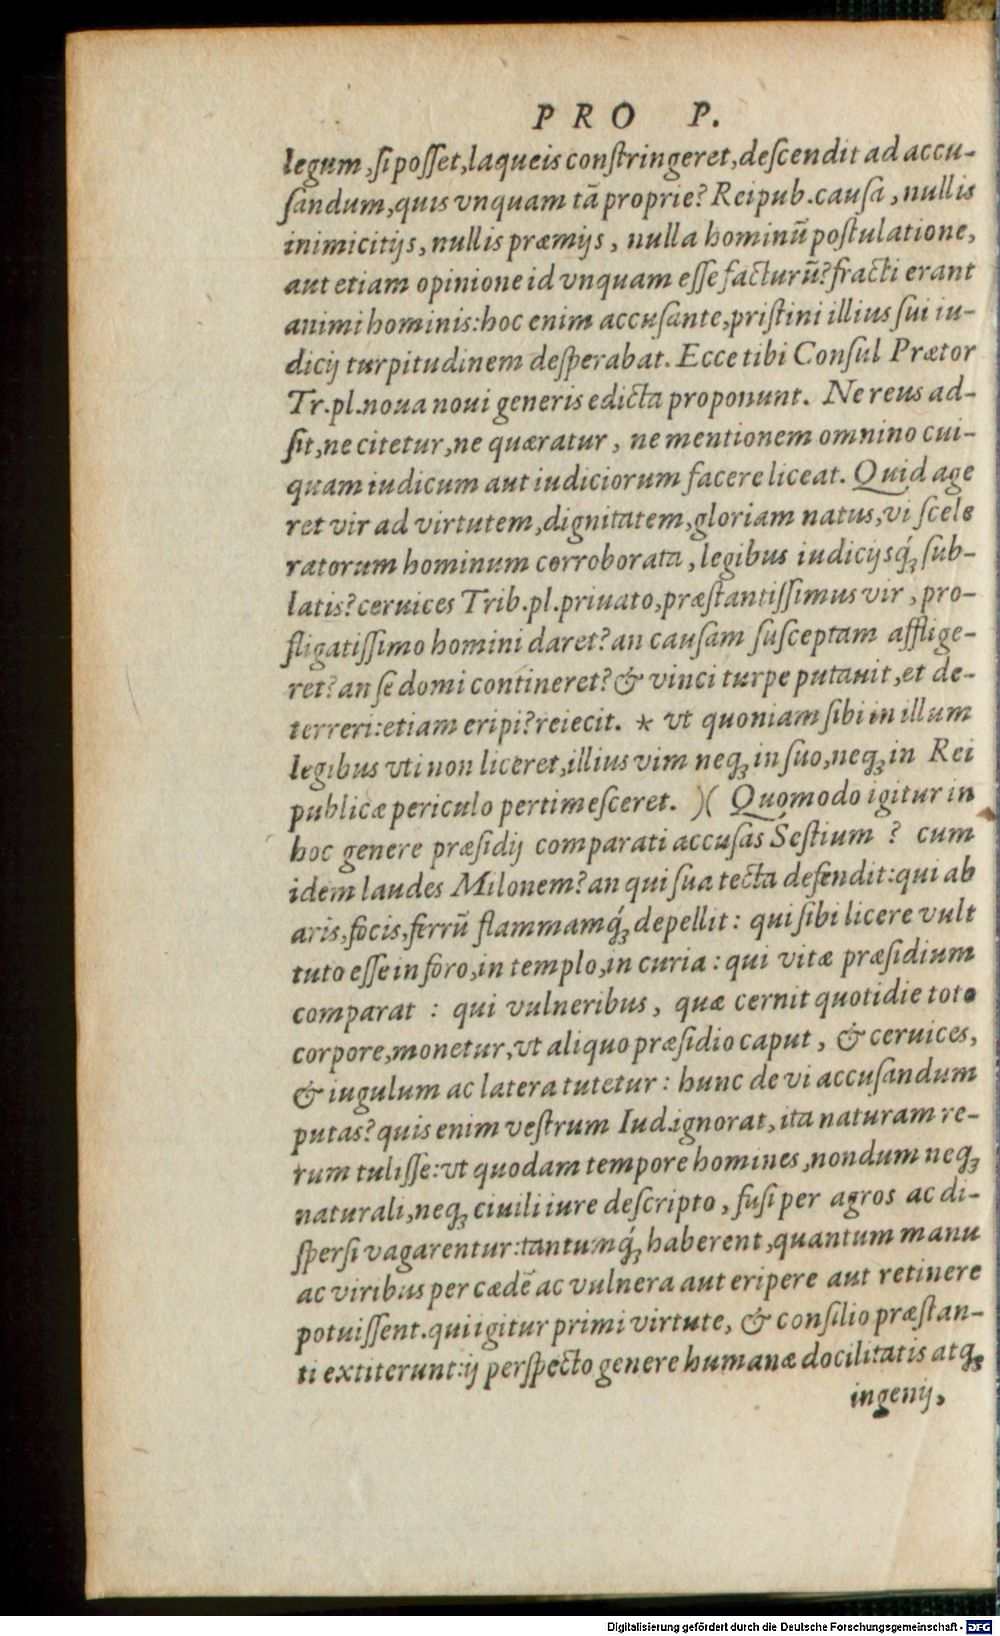 PRO P.
legum, si posset, laqueis constringeret, descendit ad accu-
sandum, quis vnquam tā proprie? Reipub. causa, nullis
inimicitijs, nullis præmijs, nulla hominū postulatione,
aut etiam opinione id vnquam esse facturū? fracti erant
animi hominis: hoc enim accusante, pristini illius sui iu-
dicij turpitudinem desperabat. Ecce tibi Consul Prætor
Tr. pl. noua noui generis edicta proponunt. Ne reus ad-
sit, ne citetur, ne quæratur, ne mentionem omnino cui-
quam iudicum aut iudiciorum facere liceat. Quid age
ret vir ad virtutem, dignitatem, gloriam natus, vi scele
ratorum hominum corroborata, legibus iudicijsq́; sub-
latis? ceruices Trib. pl. priuato, præstantissimus vir, pro-
fligatissimo homini daret? an causam susceptam afflige-
ret? an se domi contineret? & vinci turpe putauit, et de-
terreri: etiam eripi? reiecit. * vt quoniam sibi in illum
legibus vti non liceret, illius vim neq; in suo, neq; in Rei
publicæ periculo pertimesceret. )( Quomodo igitur in
hoc genere præsidij comparati accusas Sestium? cum
idem laudes Milonem? an qui sua tecta defendit: qui ab
aris, focis, ferrū flammamq́; depellit: qui sibi licere vult
tuto esse in foro, in templo, in curia: qui vitæ præsidium
comparat: qui vulneribus, quæ cernit quotidie toto
corpore, monetur, vt aliquo præsidio caput, & ceruices,
& iugulum ac latera tutetur: hunc de vi accusandum
putas? quis enim vestrum Iud. ignorat, ita naturam re-
rum tulisse: vt quodam tempore homines, nondum neq;
naturali, neq; ciuili iure descripto, fusi per agros ac di-
spersi vagarentur: tantumq́; haberent, quantum manu
ac viribus per cædē ac vulnera aut eripere aut retinere
potuissent. qui igitur primi virtute, & consilio præstan-
ti extiterunt: ij perspecto genere humanæ docilitatis atq;
ingenij,
Digitalisierung gefördert durch die Deutsche Forschungsgemeinschaft - DFG